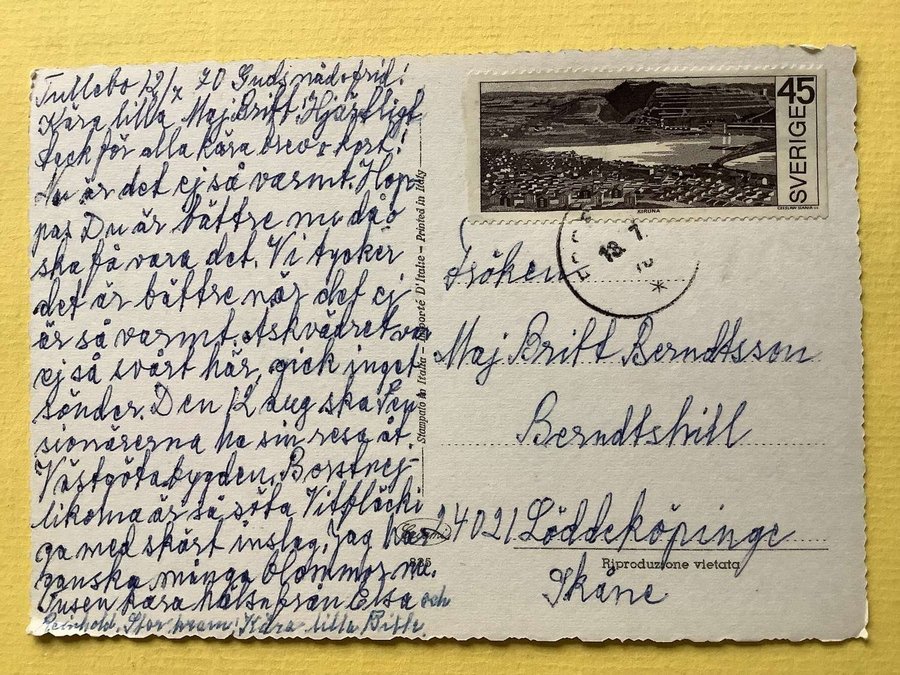 Tullebo 12/7 70 Guds nåd o frid!
Kära lilla Maj Britt! Hjärtligt
tack för alla kära brev o kort!
Nu är det ej så varmt. Hop-
pas Du är bättre nu då o
ska få vara det. Vi tycker
det är bättre när det ej
är så varmt. Åskvädret va
ej så svårt här, gick inget
sönder. Den 12 aug ska Pen-
sionärerna ha sin resa åt
Västgötabygden. Borstnej-
likorna är så söta Vitfläcki
ga med skärt inslag. Jag har
ganska många blommor nu.
Tusen kära hälsn från Elsa och
Reinhold. Stor kram! Kära lilla Britt.
Stampato in Italia - Importé D'Italie - Printed in Italy
SVERIGE 45
KIRUNA
CZESLAW SLANIA SC
13. 7.
70
Fröken
Maj Britt Berndtsson
Berndtshill
24021 Löddeköpinge
Skåne
Riproduzione vietata